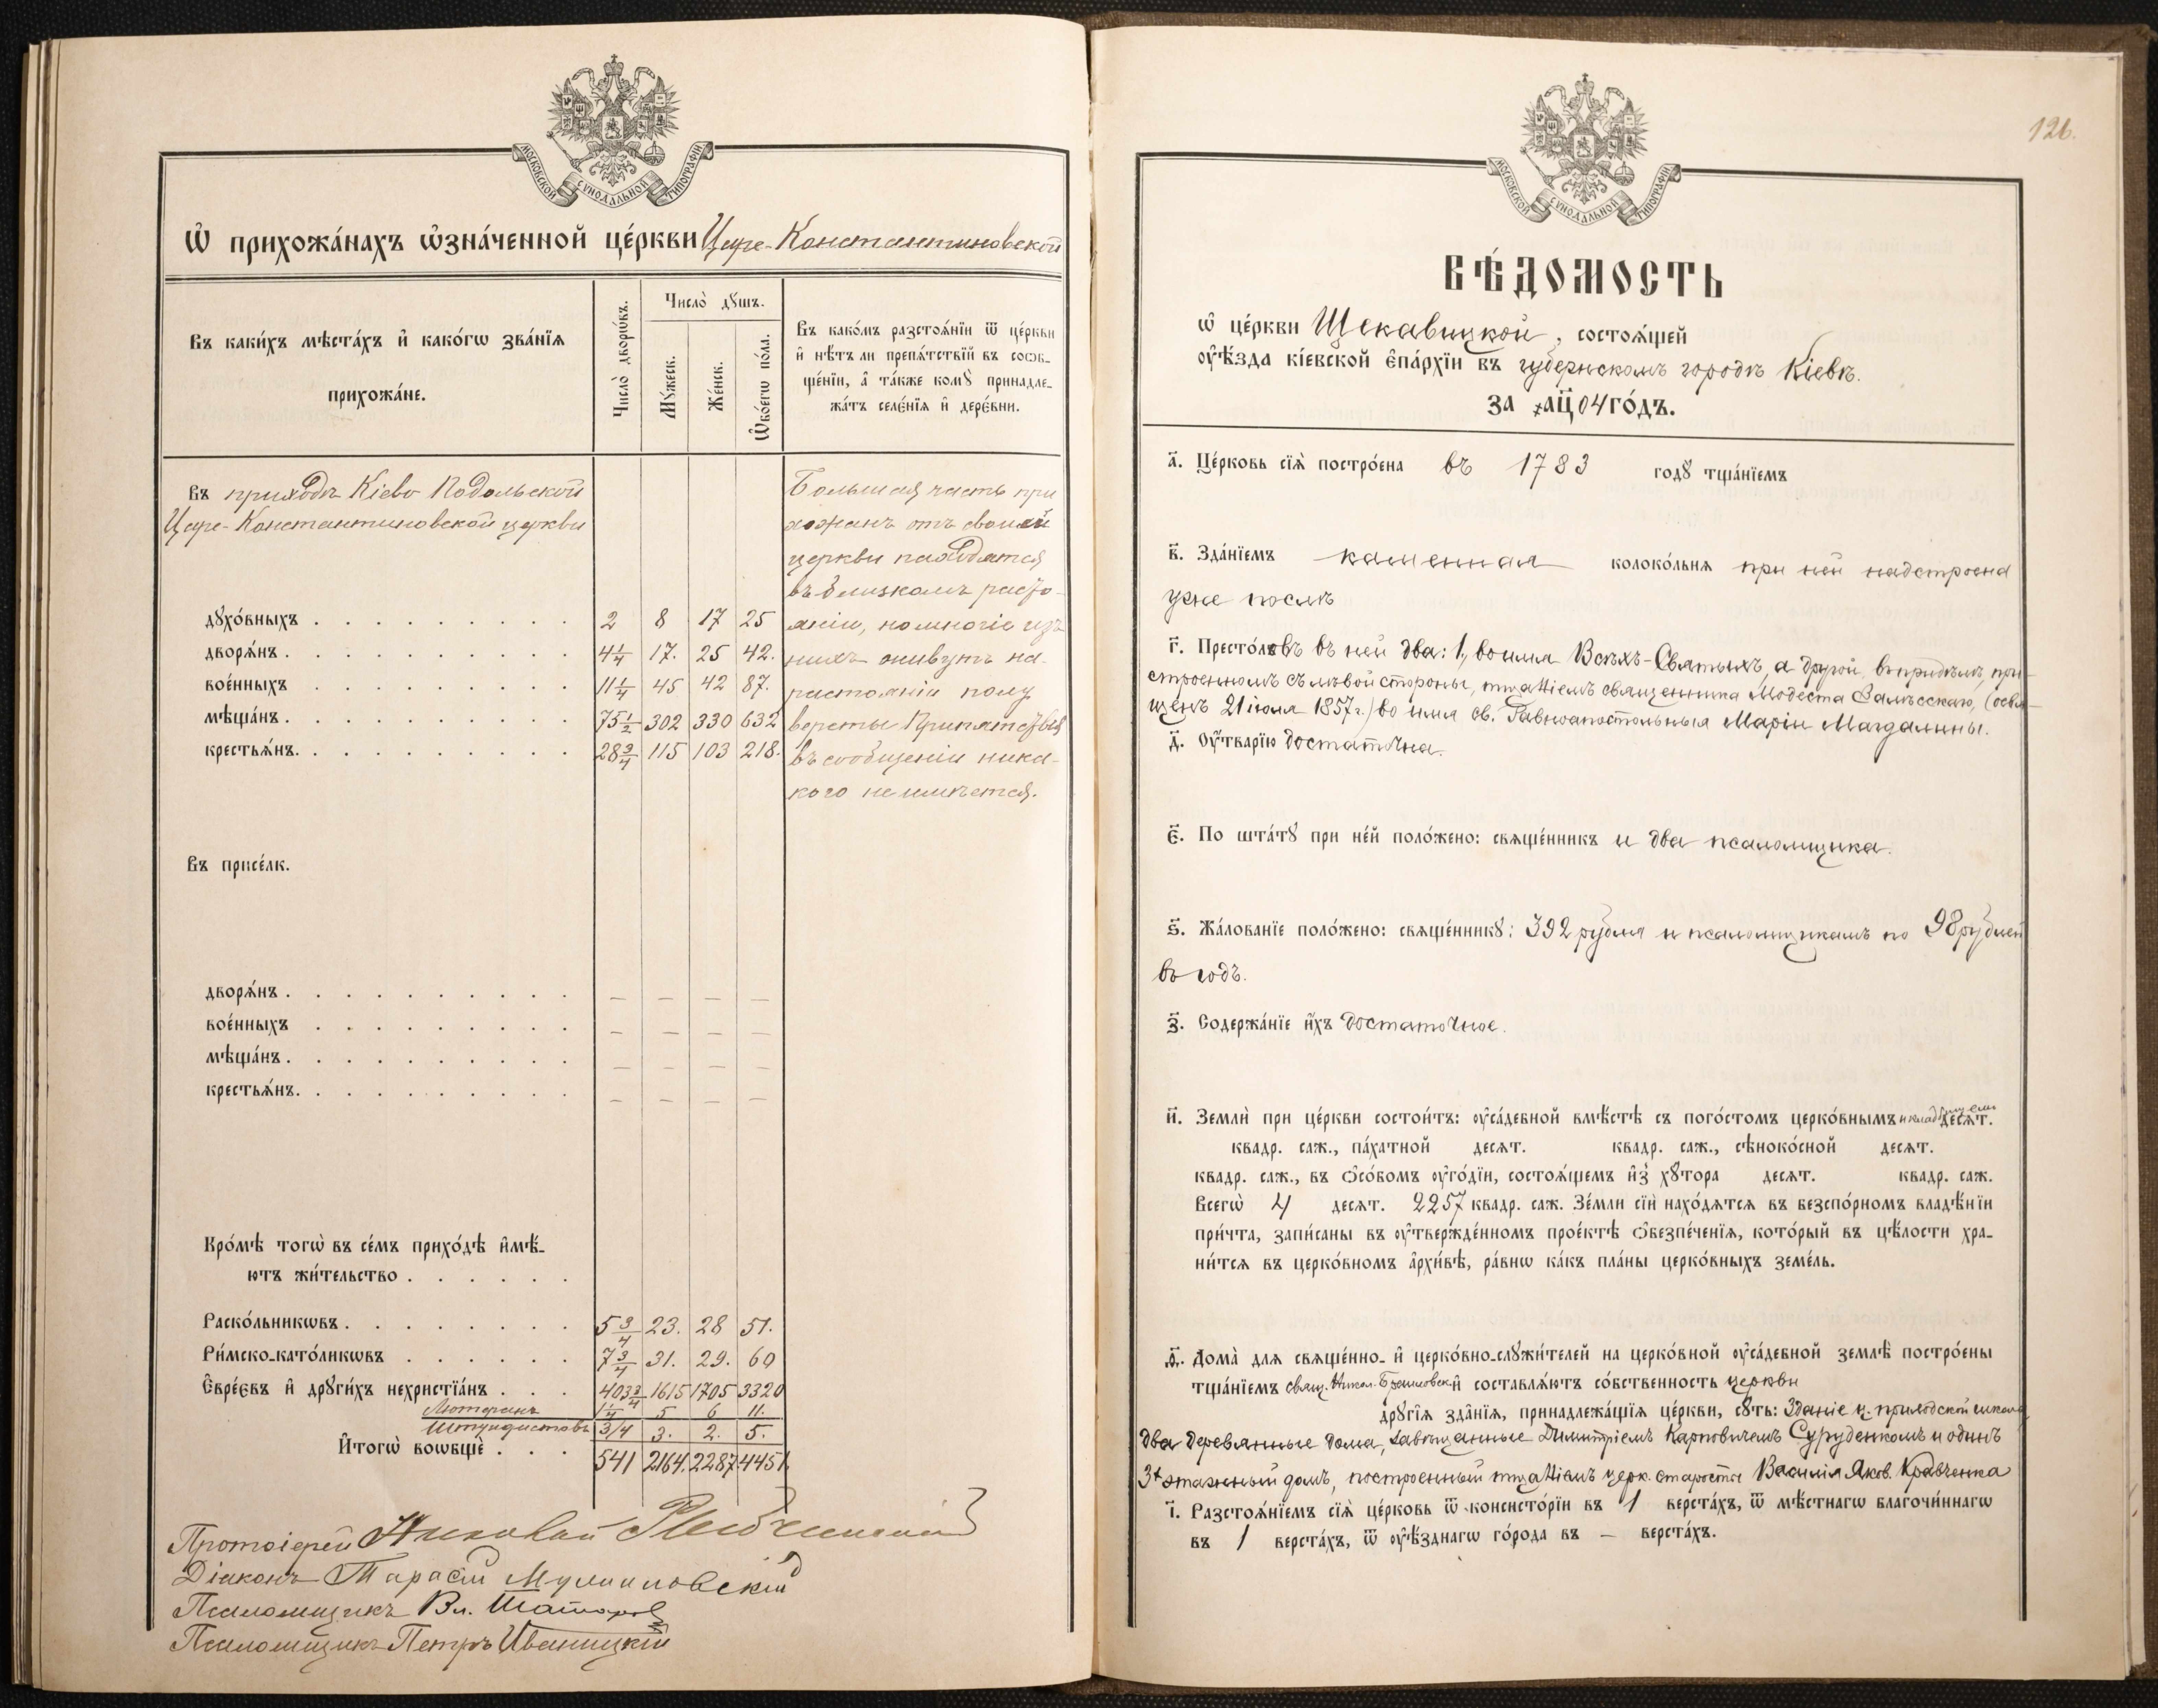 МОСКОВСКОЙ СУНОДАЛЬНОЙ ТИПОГРАФІИ
Ѽ прихожа́нахъ ѡ҆зна́ченной це́ркви Царе-Константиновской
Въ каки́хъ мѣста́хъ и҆ како́гѡ зва́нїѧ прихожа́не.
Число̀ дворѡ́въ.
Число̀ дꙋшъ.
Мꙋ́жеск.
Же́нск.
Ѻ҆бо́егѡ по́ла.
Въ како́мъ разстоѧ́нїи ѿ це́ркви
и҆ нѣ́тъ ли препѧ́тствїй въ соѡб-
ще́нїи, а҆ та́кже комꙋ̀ принадле-
жа́тъ селе́нїѧ и҆ дере́вни.
Въ приходѣ Кіево Подольской
Царе-Константиновской церкви
Большая часть при
хожанъ отъ своей
церкви находятся
въ близкомъ растo-
дꙋхо́вныхъ 2 8 17 25 яніи, но многіе изъ
дворѧ́нъ 4 1/4 17. 25 42. нихъ живутъ на
вое́нныхъ 11 1/4 45 42 87. растояніи полу
мѣща́нъ 75 1/2 302 330 632 версты Припятствія
крестьѧ́нъ 28 3/4 115 103 218. въ сообщеніи ника-
кого не имѣется.
Въ присе́лк.
дворѧ́нъ — — — —
вое́нныхъ — — — —
мѣща́нъ — — — —
крестьѧ́нъ — — — —
Кро́мѣ тогѡ̀ въ се́мъ прихо́дѣ и҆мѣ́-
ютъ жи́тельство
Раско́льникѡвъ 5 3/4 23. 28 51.
Ри́мско-като́ликѡвъ 7 3/4 31. 29. 60
Є҆вре́євъ и҆ дрꙋги́хъ нехристїа́нъ 403 3/4 1615 1705 3320
Лютеранъ 1 1/4 5 6 11.
Штундистовъ 3/4 3. 2. 5.
И҆тогѡ̀ воѡбщѐ 541 2164. 2287 4451
Протоіерей Николай
Діаконъ Тарасій
Псаломщикъ Вл.
Псаломщикъ Петръ Иваницкій
126.
МОСКОВСКОЙ СУНОДАЛЬНОЙ ТИПОГРАФІИ
ВѢ́ДОМОСТЬ
ѡ҆ це́ркви Щекавицкой, состоѧ́щей
оу҆ѣ́зда кі́евской є҆па́рхїи въ губернскомъ городѣ Кіевѣ.
за ҂ац҃ 04 го́дъ.
а҃. Це́рковь сїѧ̀ постро́ена въ 1783 годꙋ̀ тща́нїемъ
в҃. Зда́нїемъ каменная колоко́льнѧ при ней надстроена
уже послѣ
г҃. Престо́ловъ въ ней два: 1, во имя Всѣхъ-Святыхъ, а другой въ придѣлѣ, при-
строенномъ съ лѣвой стороны, тщаніемъ священника Модеста Залѣсскаго, (освя-
щенъ 21 іюля 1857 г.) во имя св. Равноапостольныя Маріи Магдалины.
д҃. Оу҆́тварїю достаточна.
є҃. По шта́тꙋ при не́й поло́жено: свѧще́нникъ и два псаломщика.
ѕ҃. Жа́лованїе поло́жено: свѧще́нникꙋ: 392 рубля и псаломщикамъ по 98 рублей
въ годъ.
з҃. Содержа́нїе и҆́хъ достаточное.
и҃. Землѝ при це́ркви состои́тъ: оу҆са́дебной вмѣ́стѣ съ пого́стомъ церко́внымъ и кладбищемъ десѧ́т.
квадр. саж., па́хатной десѧт. квадр. саж., сѣноко́сной десѧт.
квадр. саж., въ ѻ҆со́бомъ оу҆го́дїи, состоѧ́щемъ и҆з̾ хꙋ́тора десѧт. квадр. саж.
Всегѡ̀ 4 десѧт. 2257 квадр. саж. Зе́мли сїѝ нахо́дѧтсѧ въ безспо́рномъ владѣ́нїи
при́чта, запи́саны въ оу҆твержде́нномъ прое́ктѣ ѻ҆безпе́ченїѧ, кото́рый въ цѣ́лости хра-
ни́тсѧ въ церко́вномъ а҆рхи́вѣ, ра́внѡ ка́къ пла́ны церко́вныхъ земе́ль.
ѳ҃. Дома̀ длѧ свѧще́нно- и҆ церко́вно-слꙋжи́телей на церко́вной оу҆са́дебной землѣ̀ постро́ены
тща́нїемъ свящ. Никол. и҆ составлѧ́ютъ со́бственность церкви
Дрꙋгі̑ѧ зда̑нїѧ, принадлежа́щїѧ це́ркви, сꙋ́ть: зданіе ц.-приходской школы,
два деревянные дома, завѣщанные Димитріемъ Карповичемъ Сурудeнкомъ и одинъ
3х этажный домъ, построенный тщаніемъ церк. старосты Василія Яков. Кравченка
і҃. Разстоѧ́нїемъ сїѧ̀ це́рковь ѿ консисто́рїи въ 1 верста́хъ, ѿ мѣ́стнагѡ благочи́ннагѡ
въ 1 верста́хъ, ѿ оу҆ѣ́зднагѡ го́рода въ — верста́хъ.